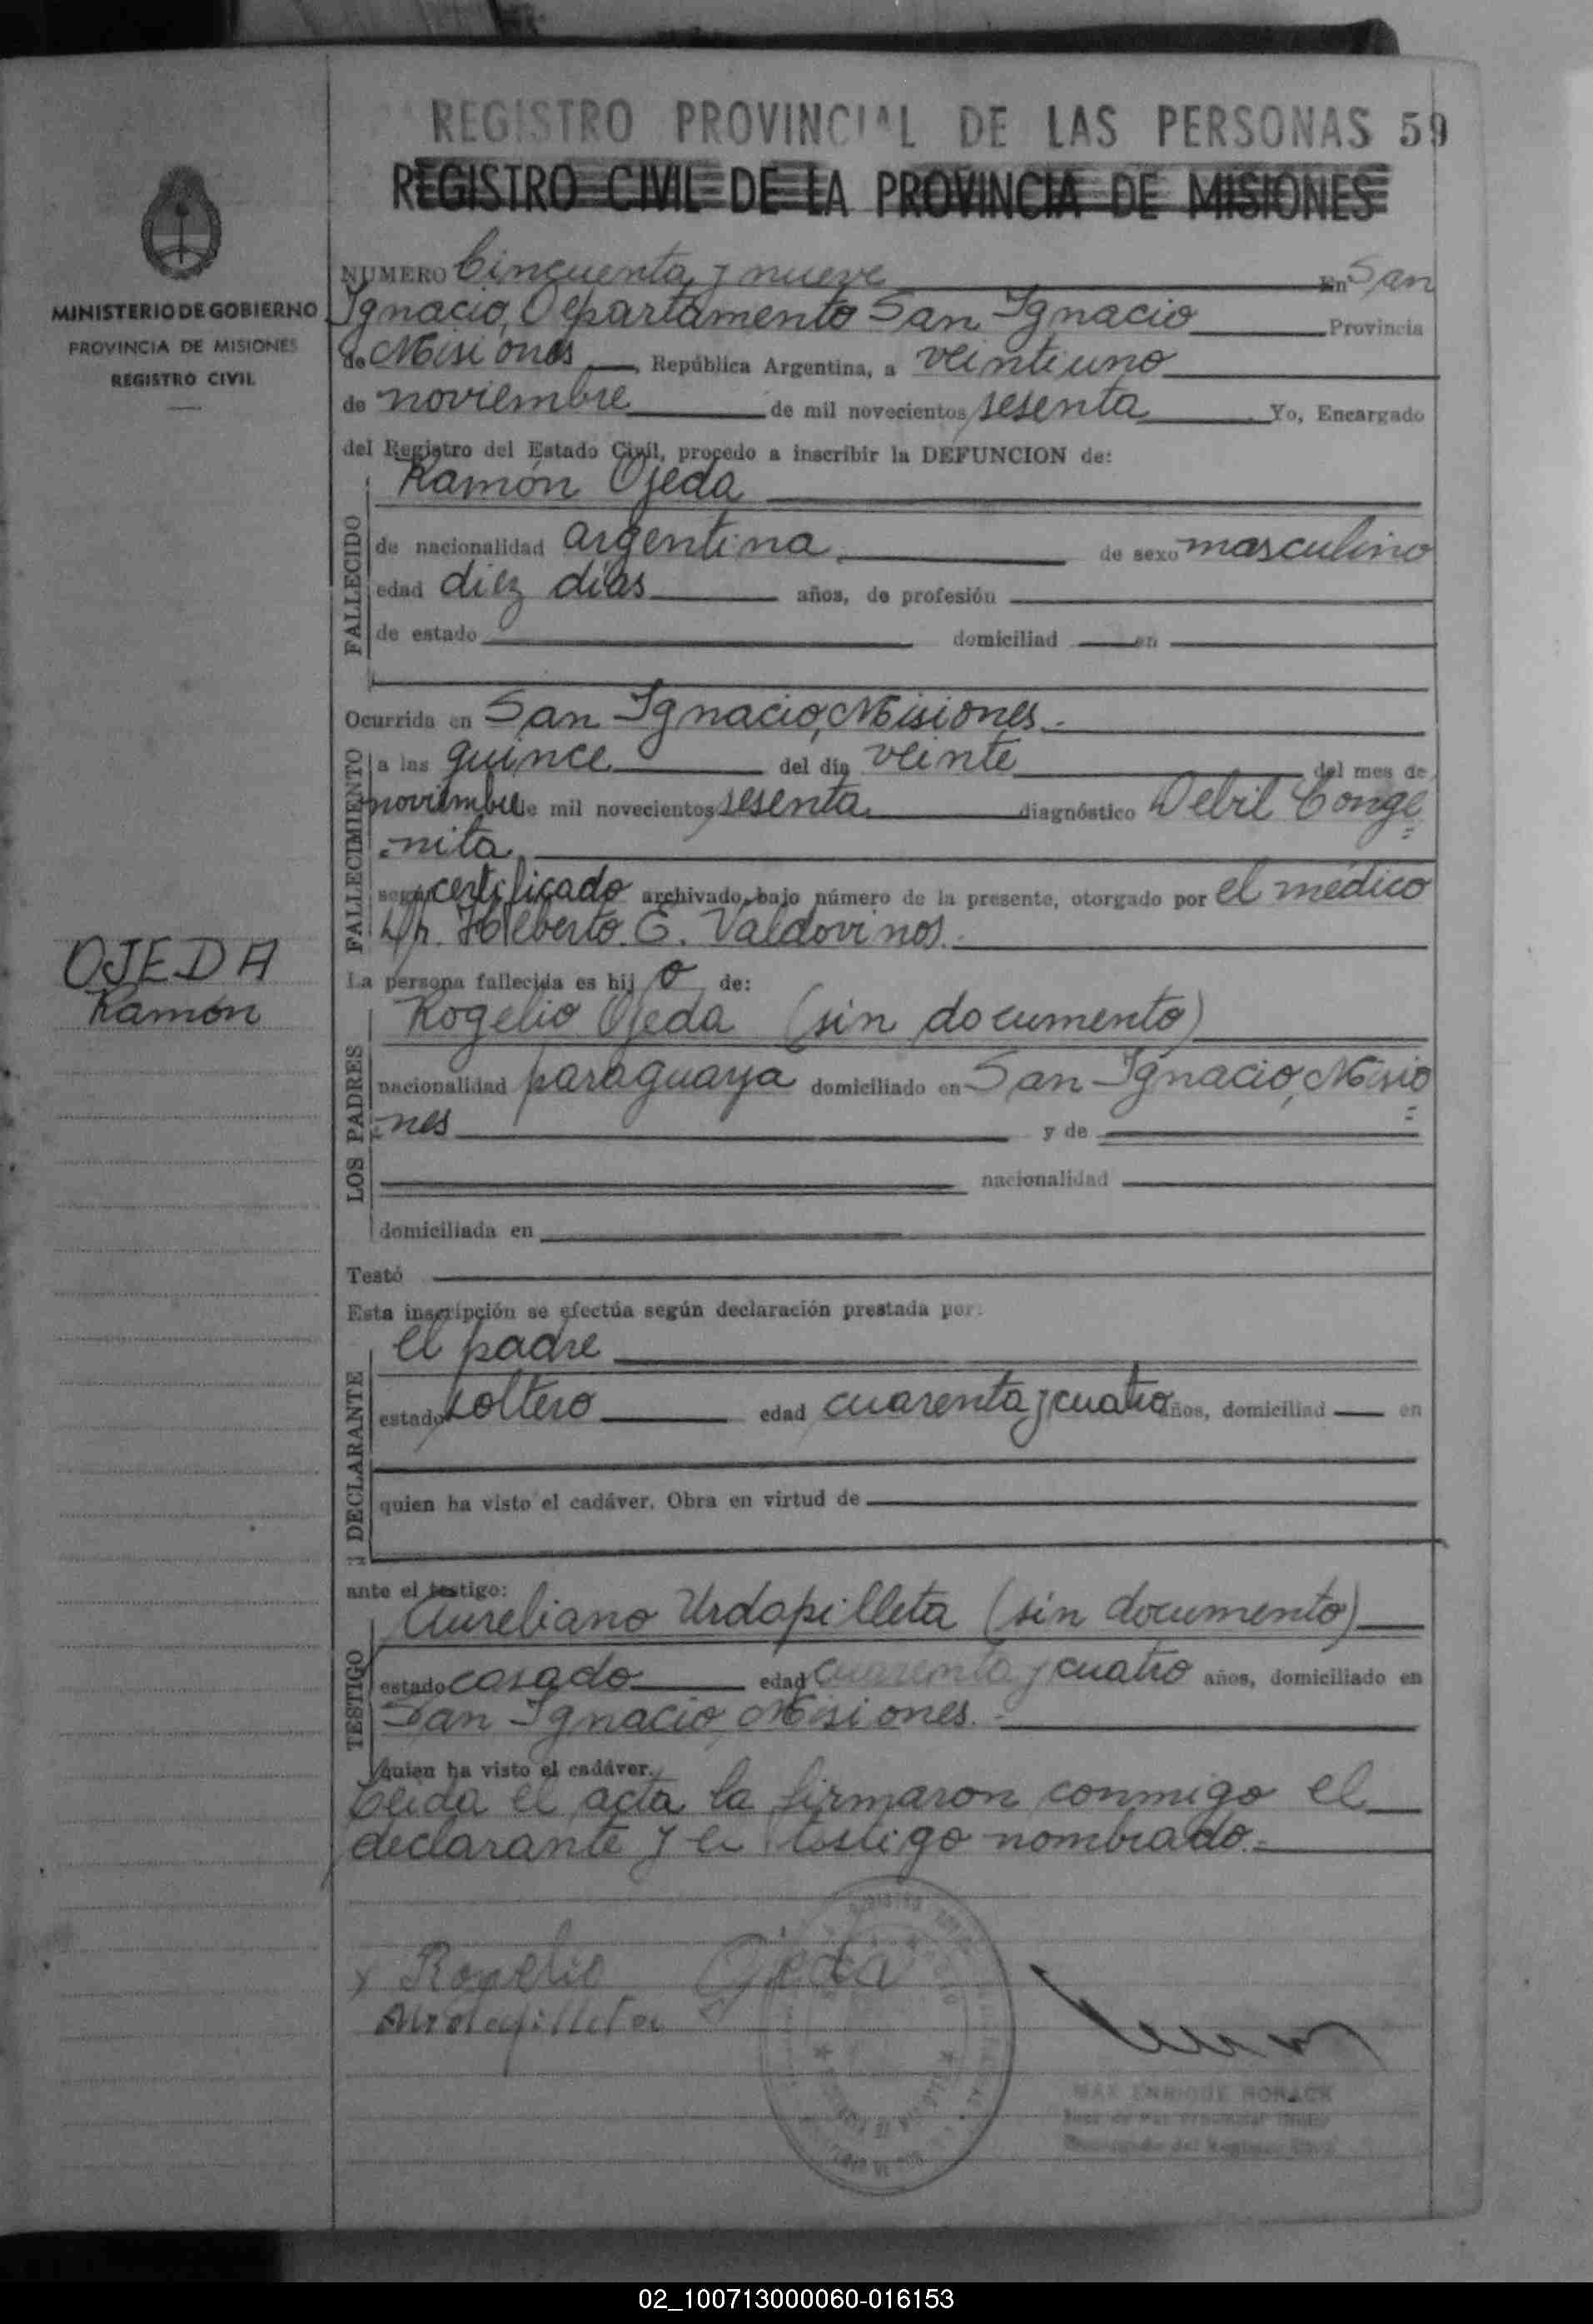 REGISTRO PROVINCIAL DE LAS PERSONAS 59
REGISTRO CIVIL DE LA PROVINCIA DE MISIONES
MINISTERIO DE GOBIERNO
PROVINCIA DE MISIONES
REGISTRO CIVIL
OJEDA
Ramón
NUMERO Cincuenta y nueve En San
Ignacio, Departamento San Ignacio Provincia
de Misiones, República Argentina, a veintiuno
de noviembre de mil novecientos sesenta. Yo, Encargado
del Registro del Estado Civil, procedo a inscribir la DEFUNCION de:
Ramón Ojeda
FALLECIDO
de nacionalidad argentina de sexo masculino
edad diez días años, de profesión
de estado domiciliad en
Ocurrida en San Ignacio, Misiones.-
FALLECIMIENTO
a las quince del día veinte del mes de
noviembre de mil novecientos sesenta diagnóstico Debil Conge
=nita
según certificado archivado bajo número de la presente, otorgado por el médico
Dr. E. Valdovinos.
La persona fallecida es hijo de:
LOS PADRES
Rogelio Ojeda (sin documento)
nacionalidad paraguaya domiciliado en San Ignacio, Misio
=nes y de
nacionalidad
domiciliada en
Testó
Esta inscripción se efectúa según declaración prestada por:
DECLARANTE
el padre
estado soltero edad cuarenta y cuatro años, domiciliad en
quien ha visto el cadáver. Obra en virtud de
ante el testigo:
TESTIGO
Aureliano Urdapilleta (sin documento)
estado casado edad cuarenta y cuatro años, domiciliado en
San Ignacio, Misiones.-
quien ha visto el cadáver.
Leida el acta la firmaron conmigo el
declarante y el testigo nombrado.-
x Rogelio Ojeda
AUrdapilleta
MAX ENRIQUE HORACK
Encargado del Registro Civil
02_100713000060-016153